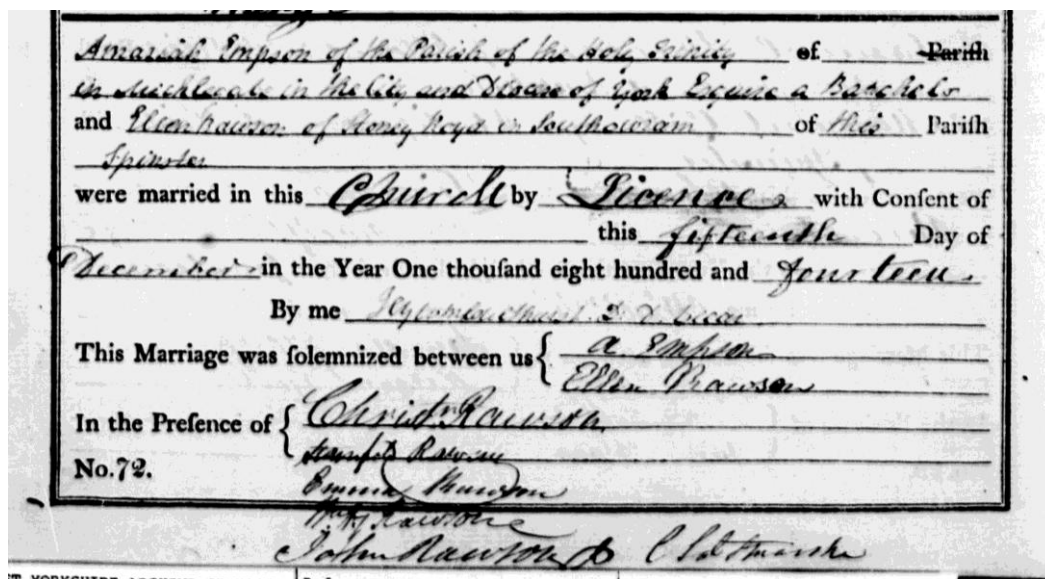 Amaziah Empson of the Parish of the Holy Trinity of Parish
in Micklegate in the City and Diocese of York Esquire a Batchelor
and Ellen Rawson of Stoney Royd in Southowram of this Parish
Spinster
were married in this Church by Licence with Conſent of
this fifteenth Day of
December in the Year One thouſand eight hundred and fourteen
By me
This Marriage was ſolemnized between us { A Empson
Ellen Rawson
In the Preſence of { Christr Rawson
Rawson
No. 72.
Emma Rawson
Rawson
John Rawson